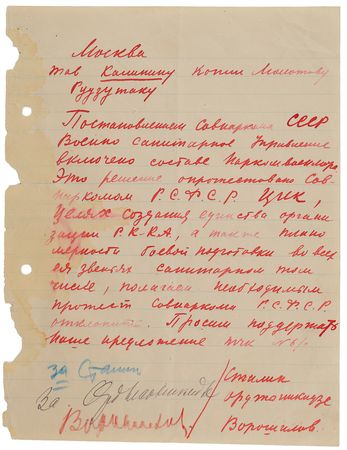 Москва
тов Калинину копии Молотову
Рудзутаку
Постановлением Совнаркома СССР
Военно санитарное Управление
включено составе Наркомвоенмора.
Это решение опротестовано Сов-
наркомом Р.С.Ф.С.Р. ЦИК,
целях создания единства органи
зации Р.К.К.А, а также плано
мерности боевой подготовки во всех
ея звеньях санитарном том
числе, полагаем необходимым
протест Совнаркома Р.С.Ф.С.Р.
отклонить. Просим поддержать
наше предложение тчк
за Сталин
Сталин
За Орджоникидзе
Орджоникидзе
Ворошилов.
Ворошилов.